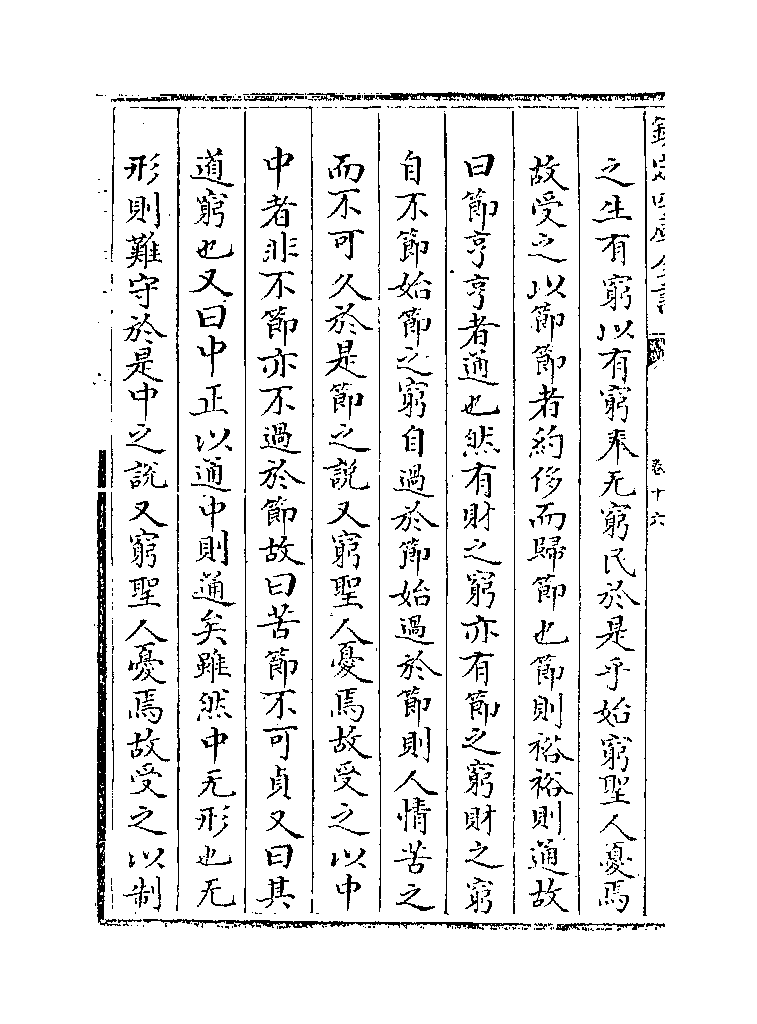 欽定四庫全書
卷十六
之生有窮以有窮奉无窮民於是乎始窮聖人憂焉
故受之以節節者約侈而歸節也節則裕裕則通故
曰節亨亨者通也然有財之窮亦有節之窮財之窮
自不節始節之窮自過於節始過於節則人情苦之
而不可久於是節之說又窮聖人憂焉故受之以中
中者非不節亦不過於節故曰苦節不可貞又曰其
道窮也又曰中正以通中則通矣雖然中无形也无
形則難守於是中之說又窮聖人憂焉故受之以制